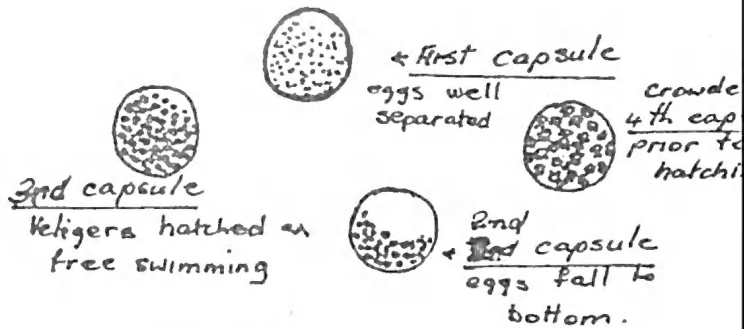 First capsule
eggs well
separated
crowde
4th cap
prior to
hatchi
3rd capsule
Veligers hatched as
free swimming
2nd
capsule
eggs fall to
bottom.